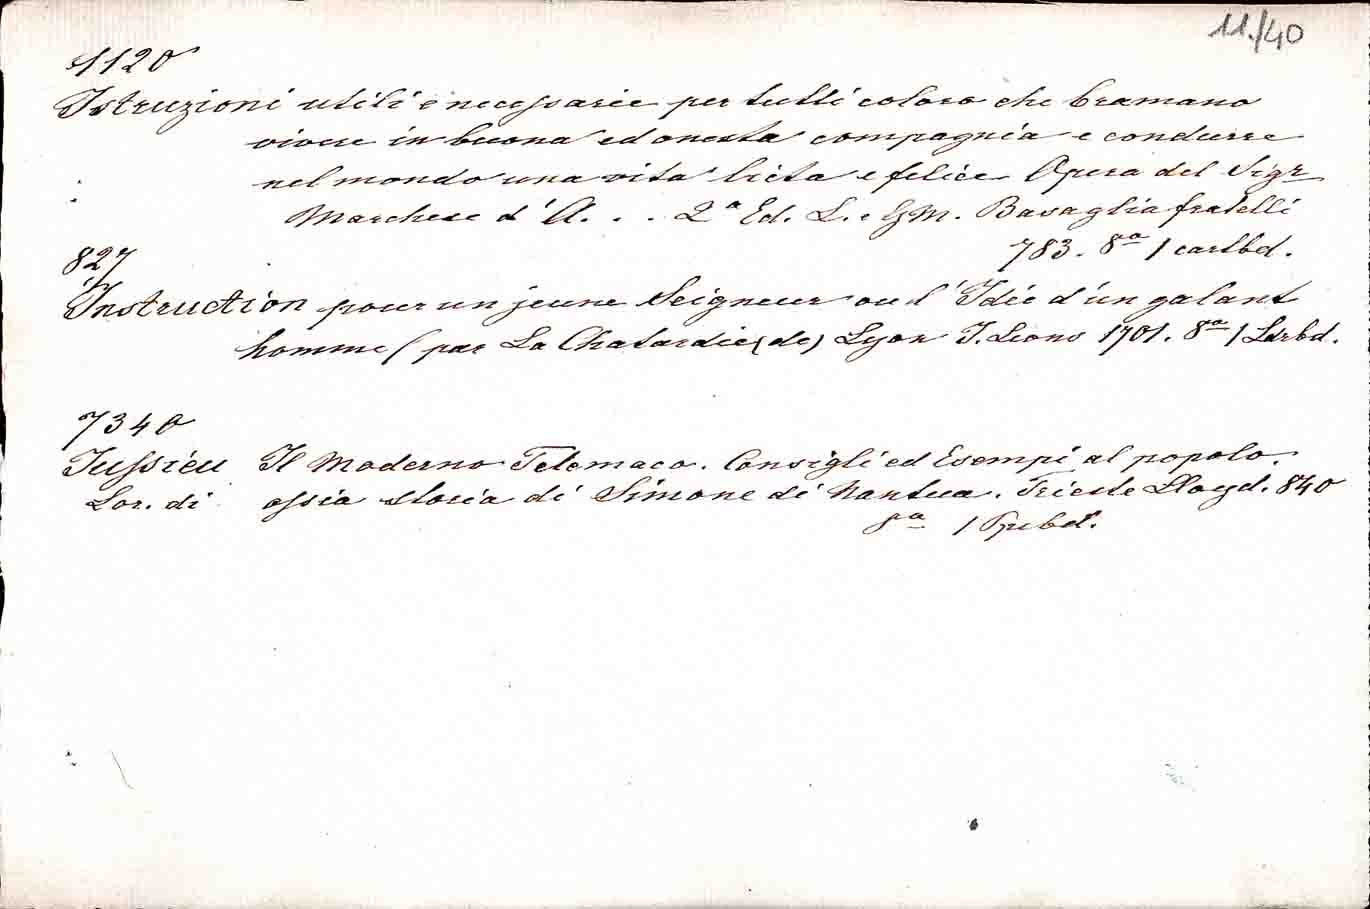 11./40
1120
Istruzioni utili e necessarie per tutti coloro che bramano
vivere in buona ed onesta compagnia e condurre
nel mondo una vita lieta e felice Opera del Sigr
Marchese d'A. . . 2a Ed. L. e GM. Bavaglia fratelli
783. 8a 1 cartbd.
827
Instruction pour un jeune Seigneur ou l'Idée d'un galant
homme (par La Chatardie (de) Lyon J. Lions 1701. 8a 1 Ldrbd.
7340
Jussieu Il Moderno Telemaco. Consigli ed Esempi al popolo.
Lor. di ossia storia di Simone di Nantua. Trieste Lloyd. 840
8a 1